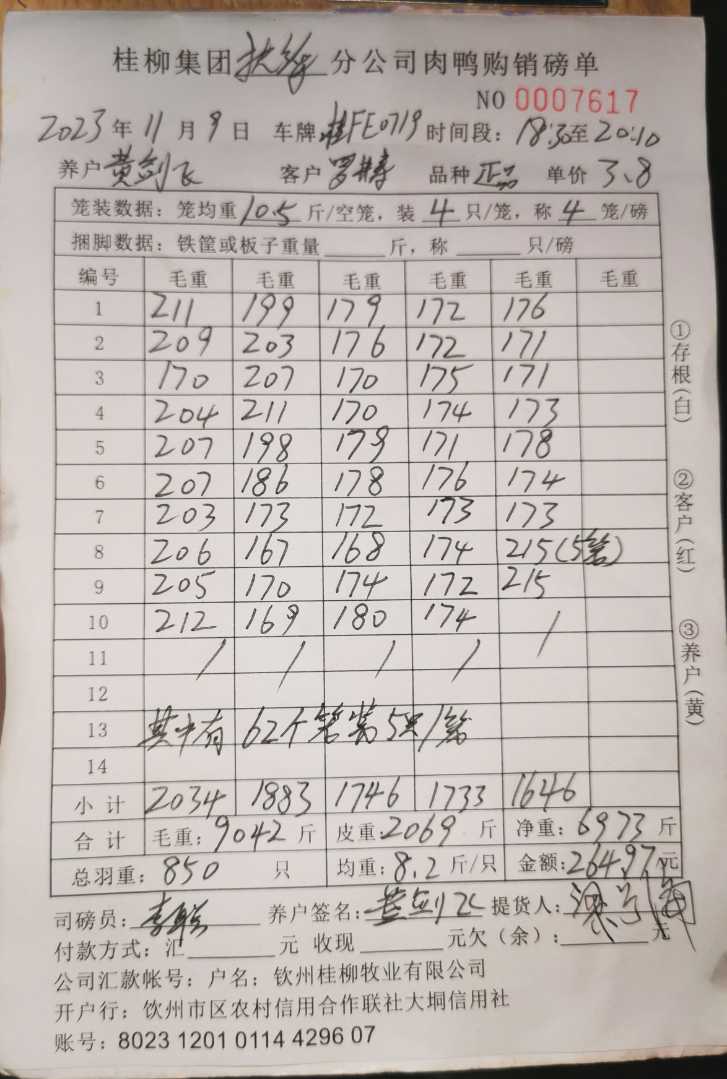 桂柳集团扶绥分公司肉鸭购销磅单
NO 0007617
2023年11月9日 车牌:桂FE0719 时间段:18:30至20:10
养户黄剑飞 客户 品种正品 单价3.8
笼装数据:笼均重10.5斤/空笼,装4只/笼,称4笼/磅
捆脚数据:铁筐或板子重量______斤,称______只/磅
编号 毛重 毛重 毛重 毛重 毛重 毛重
1 211 199 179 172 176
2 209 203 176 172 171
3 170 207 170 175 171
4 204 211 170 174 173
5 207 198 179 171 178
6 207 186 178 176 174
7 203 173 172 173 173
8 206 167 168 174 215(5笼)
9 205 170 174 172 215
10 212 169 180 174 /
11 / / / /
12
13 其中有62个笼装5只/笼
14
小计 2034 1883 1746 1733 1646
合计 毛重:9042斤 皮重:2069斤 净重:6973斤
总羽重:850只 均重:8.2斤/只 金额:26497元
司磅员: 养户签名:黄剑飞 提货人:
付款方式:汇______元 收现______元欠(余):______元
公司汇款帐号:户名:钦州桂柳牧业有限公司
开户行:钦州市区农村信用合作联社大垌信用社
账号:8023 1201 0114 4296 07
①存根(白)
②客户(红)
③养户(黄)